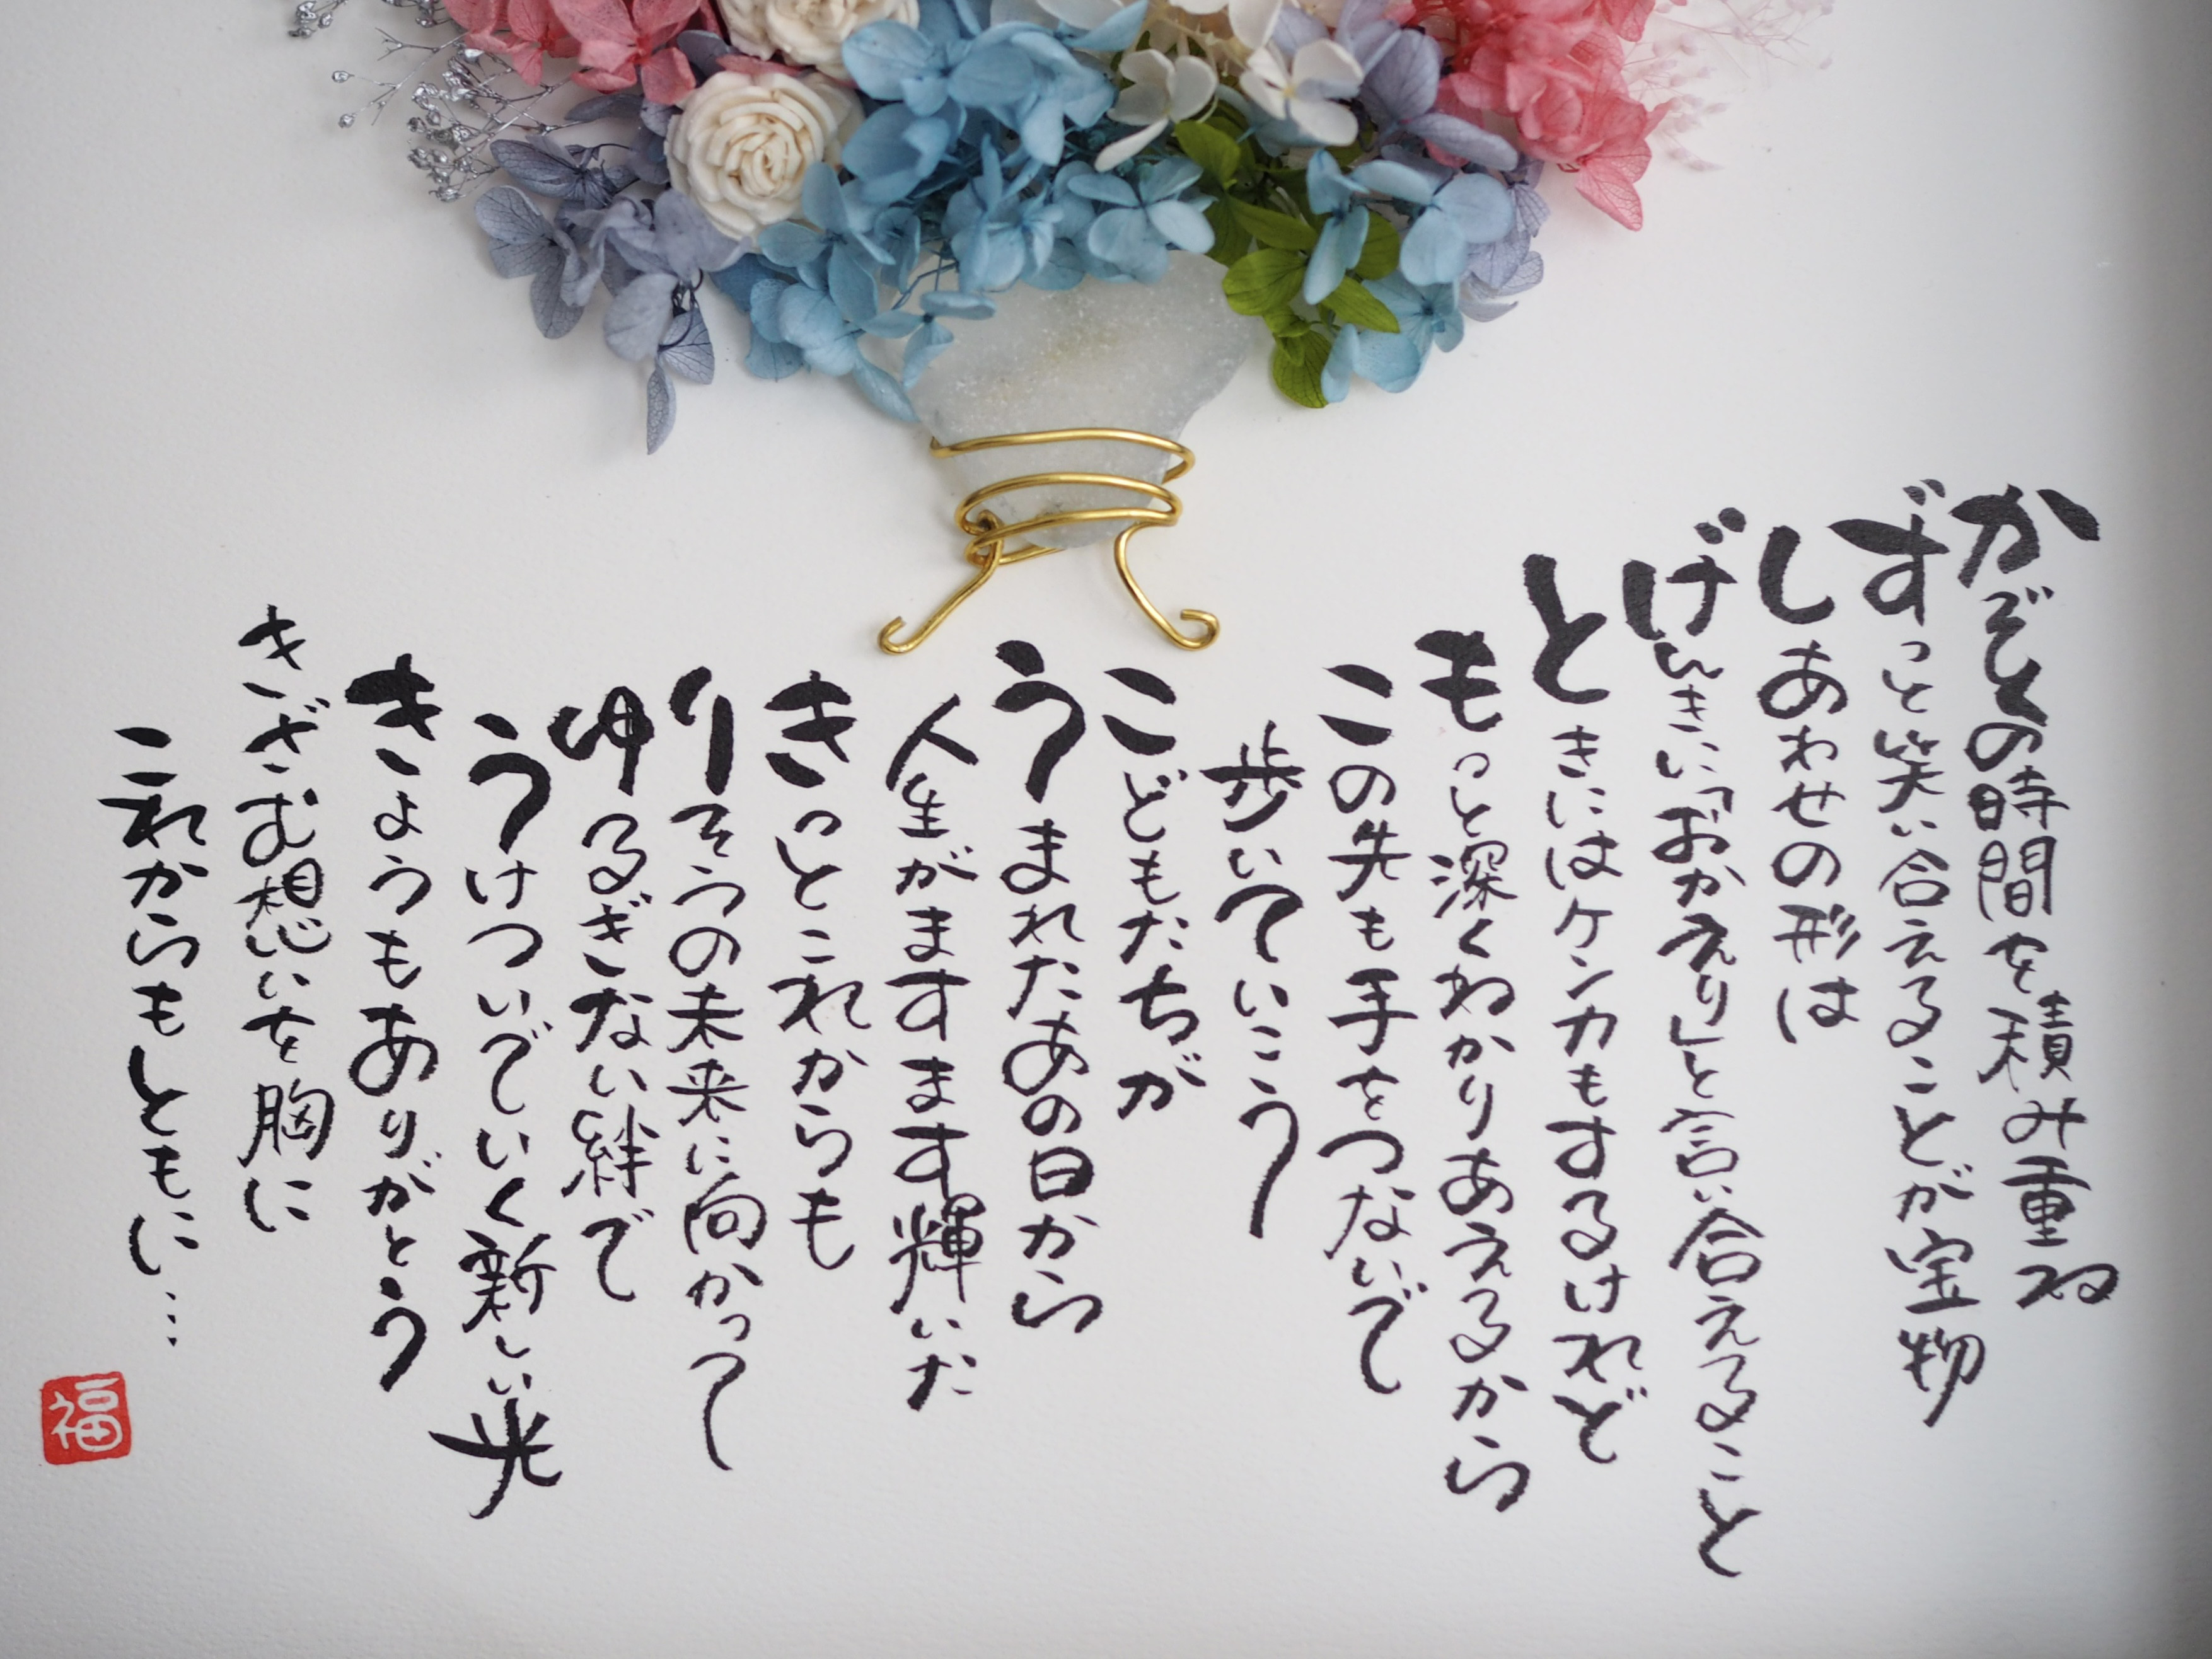 かぞくの時間を積み重ね
ずっと笑い合えることが宝物
しあわせの形は
げんきに「おかえり」と言い合えること
ときにはケンカもするけれど
もっと深くわかりあえるから
この先も手をつないで
歩いていこう
こどもたちが
うまれたあの日から
人生がますます輝いた
きっとこれからも
りそうの未来に向かって
ゆるぎない絆で
うけついでいく新しい光
きょうもありがとう
きざむ想いを胸に
これからもともに…
福